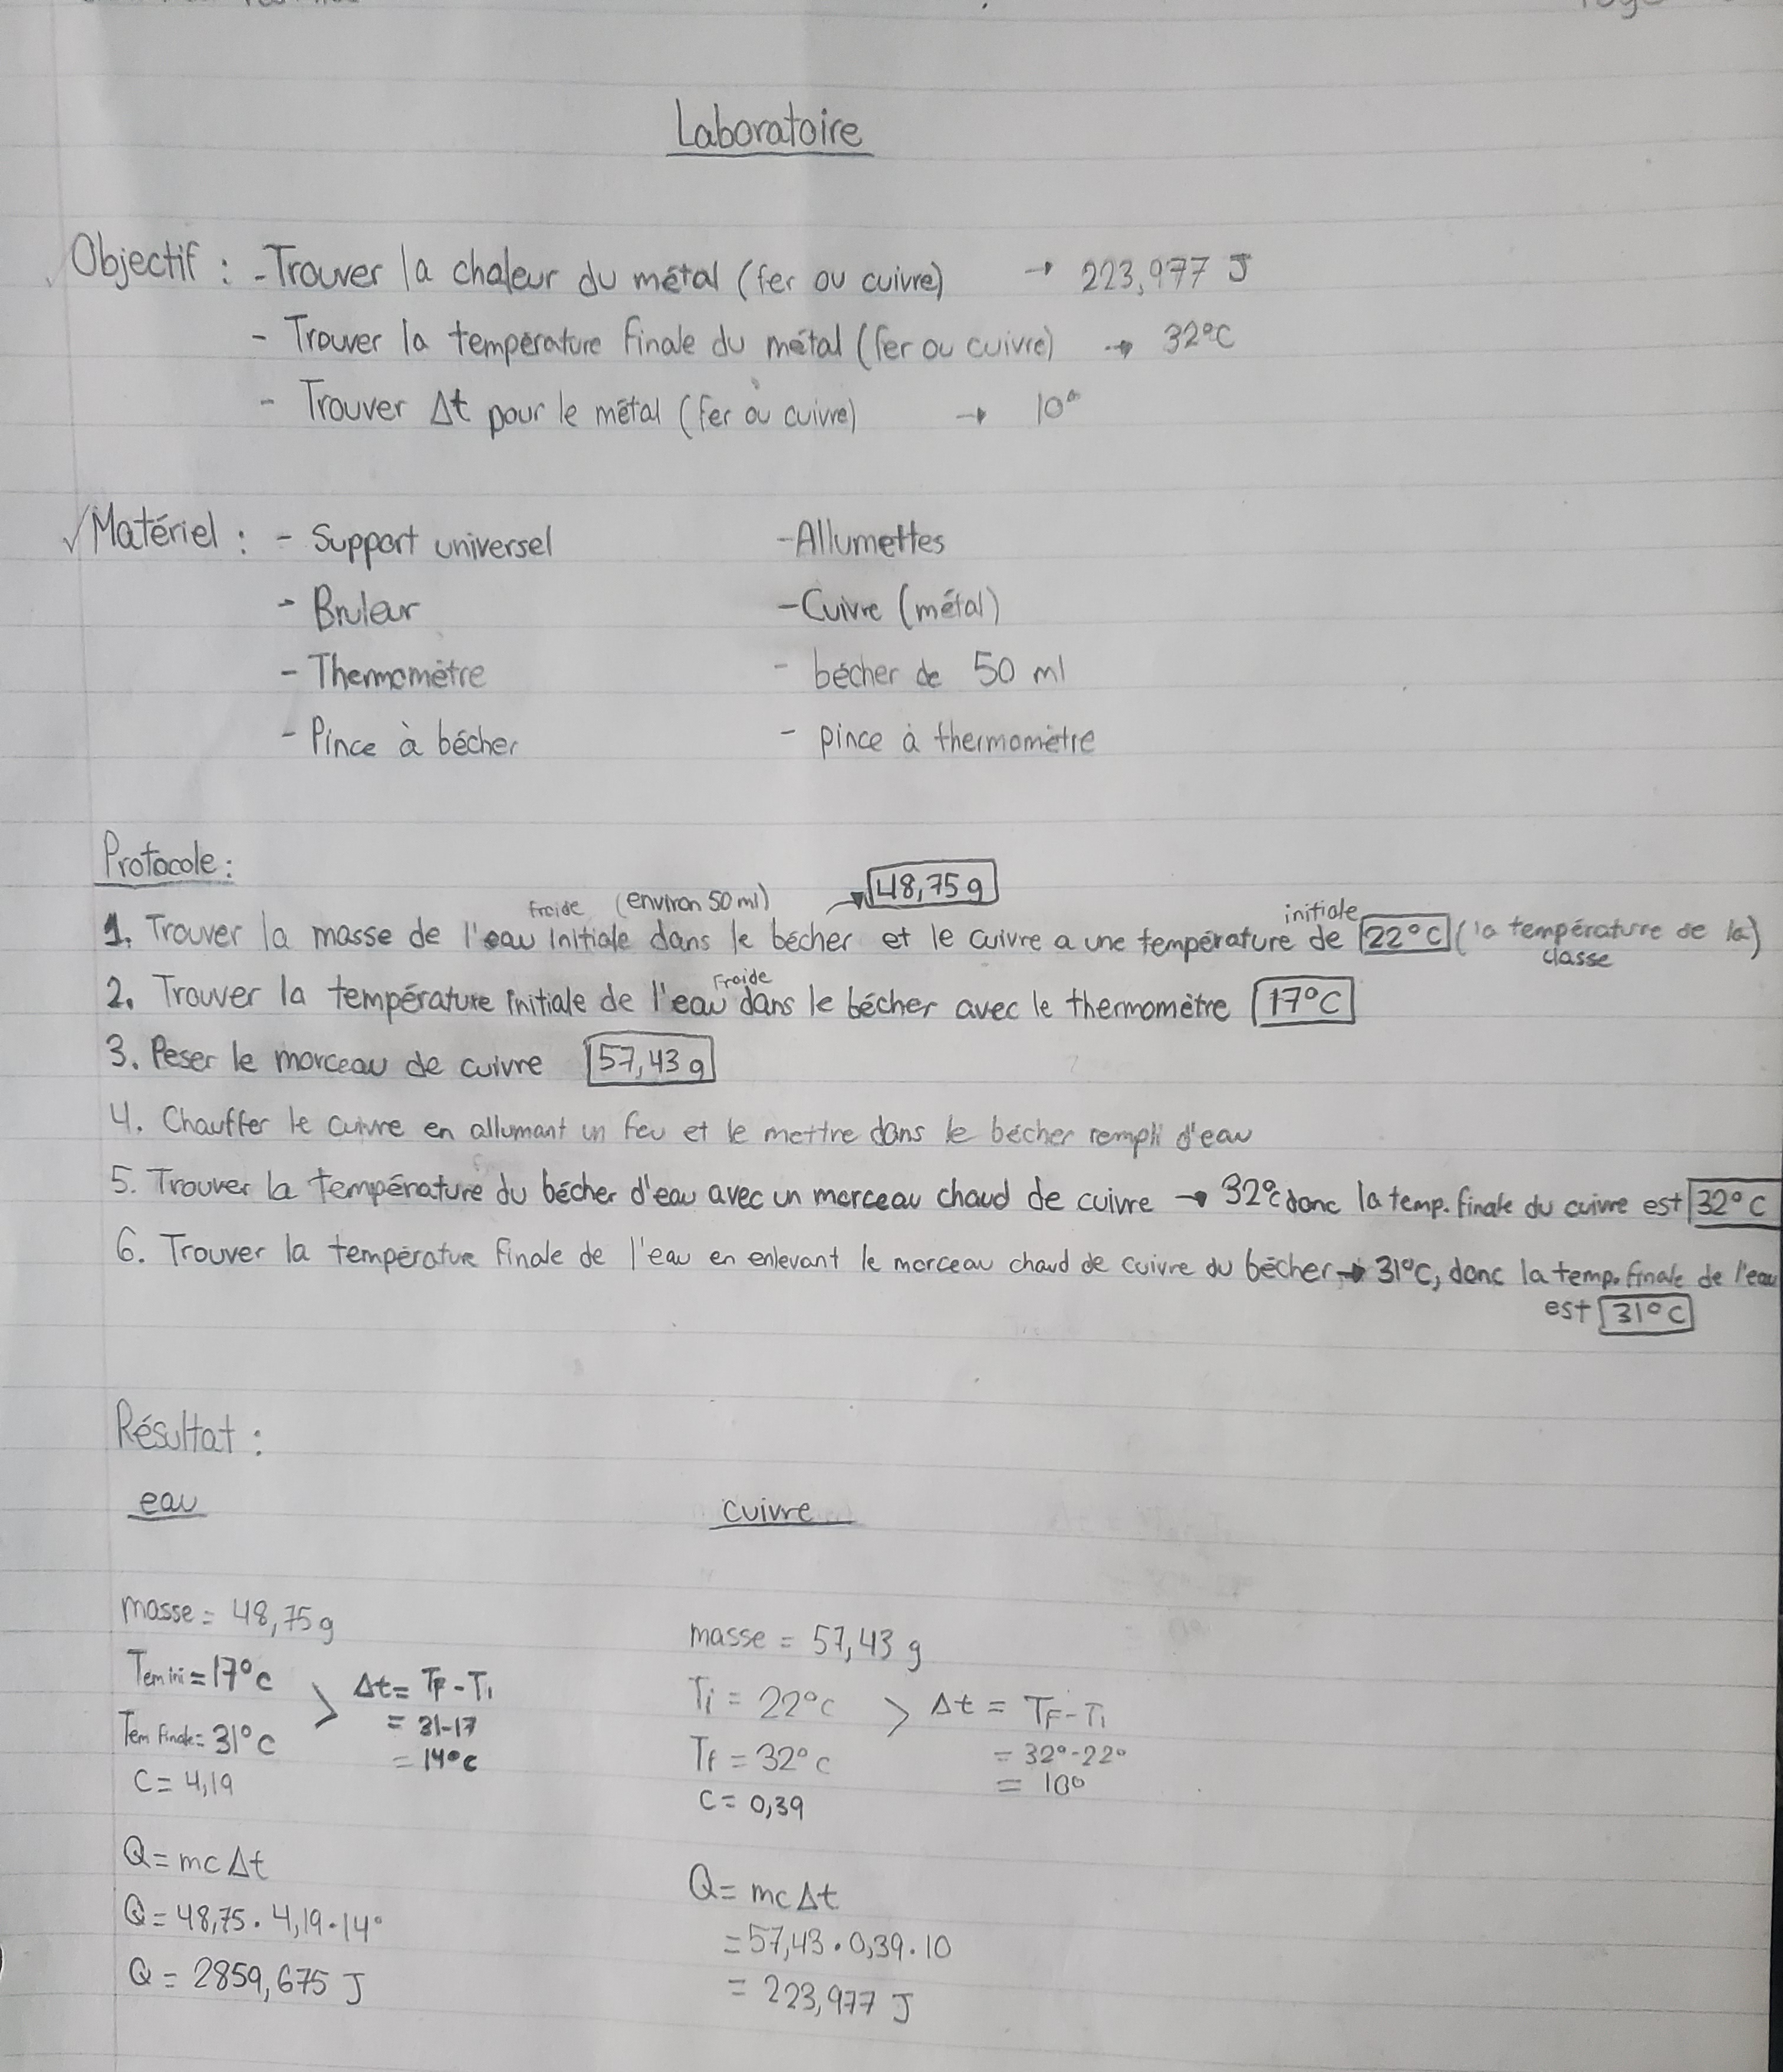 Laboratoire
Objectif : - Trouver la chaleur du métal (fer ou cuivre) → 223,977 J
- Trouver la température finale du métal (fer ou cuivre) → 32°C
- Trouver Δt pour le métal (fer ou cuivre) → 10°
✓ Matériel : - Support universel - Allumettes
- Bruleur - Cuivre (métal)
- Thermomètre - bécher de 50 ml
- Pince à bécher - pince à thermomètre
Protocole :
froide (environ 50 ml) → 48,75 g initiale
1. Trouver la masse de l'eau initiale dans le bécher et le cuivre a une température de 22°C (la température de la)
classe
froide
2. Trouver la température initiale de l'eau dans le bécher avec le thermomètre 17°C
3. Peser le morceau de cuivre 57,43 g
4. Chauffer le cuivre en allumant un feu et le mettre dans le bécher rempli d'eau
5. Trouver la température du bécher d'eau avec un morceau chaud de cuivre → 32°C donc la temp. finale du cuivre est 32°C
6. Trouver la température finale de l'eau en enlevant le morceau chaud de cuivre du bécher → 31°C, donc la temp. finale de l'eau
est 31°C
Résultat :
eau cuivre
masse = 48,75 g masse = 57,43 g
Tem ini = 17°C > Δt = TF - Ti Ti = 22°C > Δt = TF - Ti
= 31-17 = 32°-22°
Tem finale = 31°C = 14°C Tf = 32°C = 10°
C = 4,19 C = 0,39
Q = mcΔt Q = mcΔt
Q = 48,75 . 4,19 . 14° = 57,43 . 0,39 . 10
Q = 2859,675 J = 223,977 J